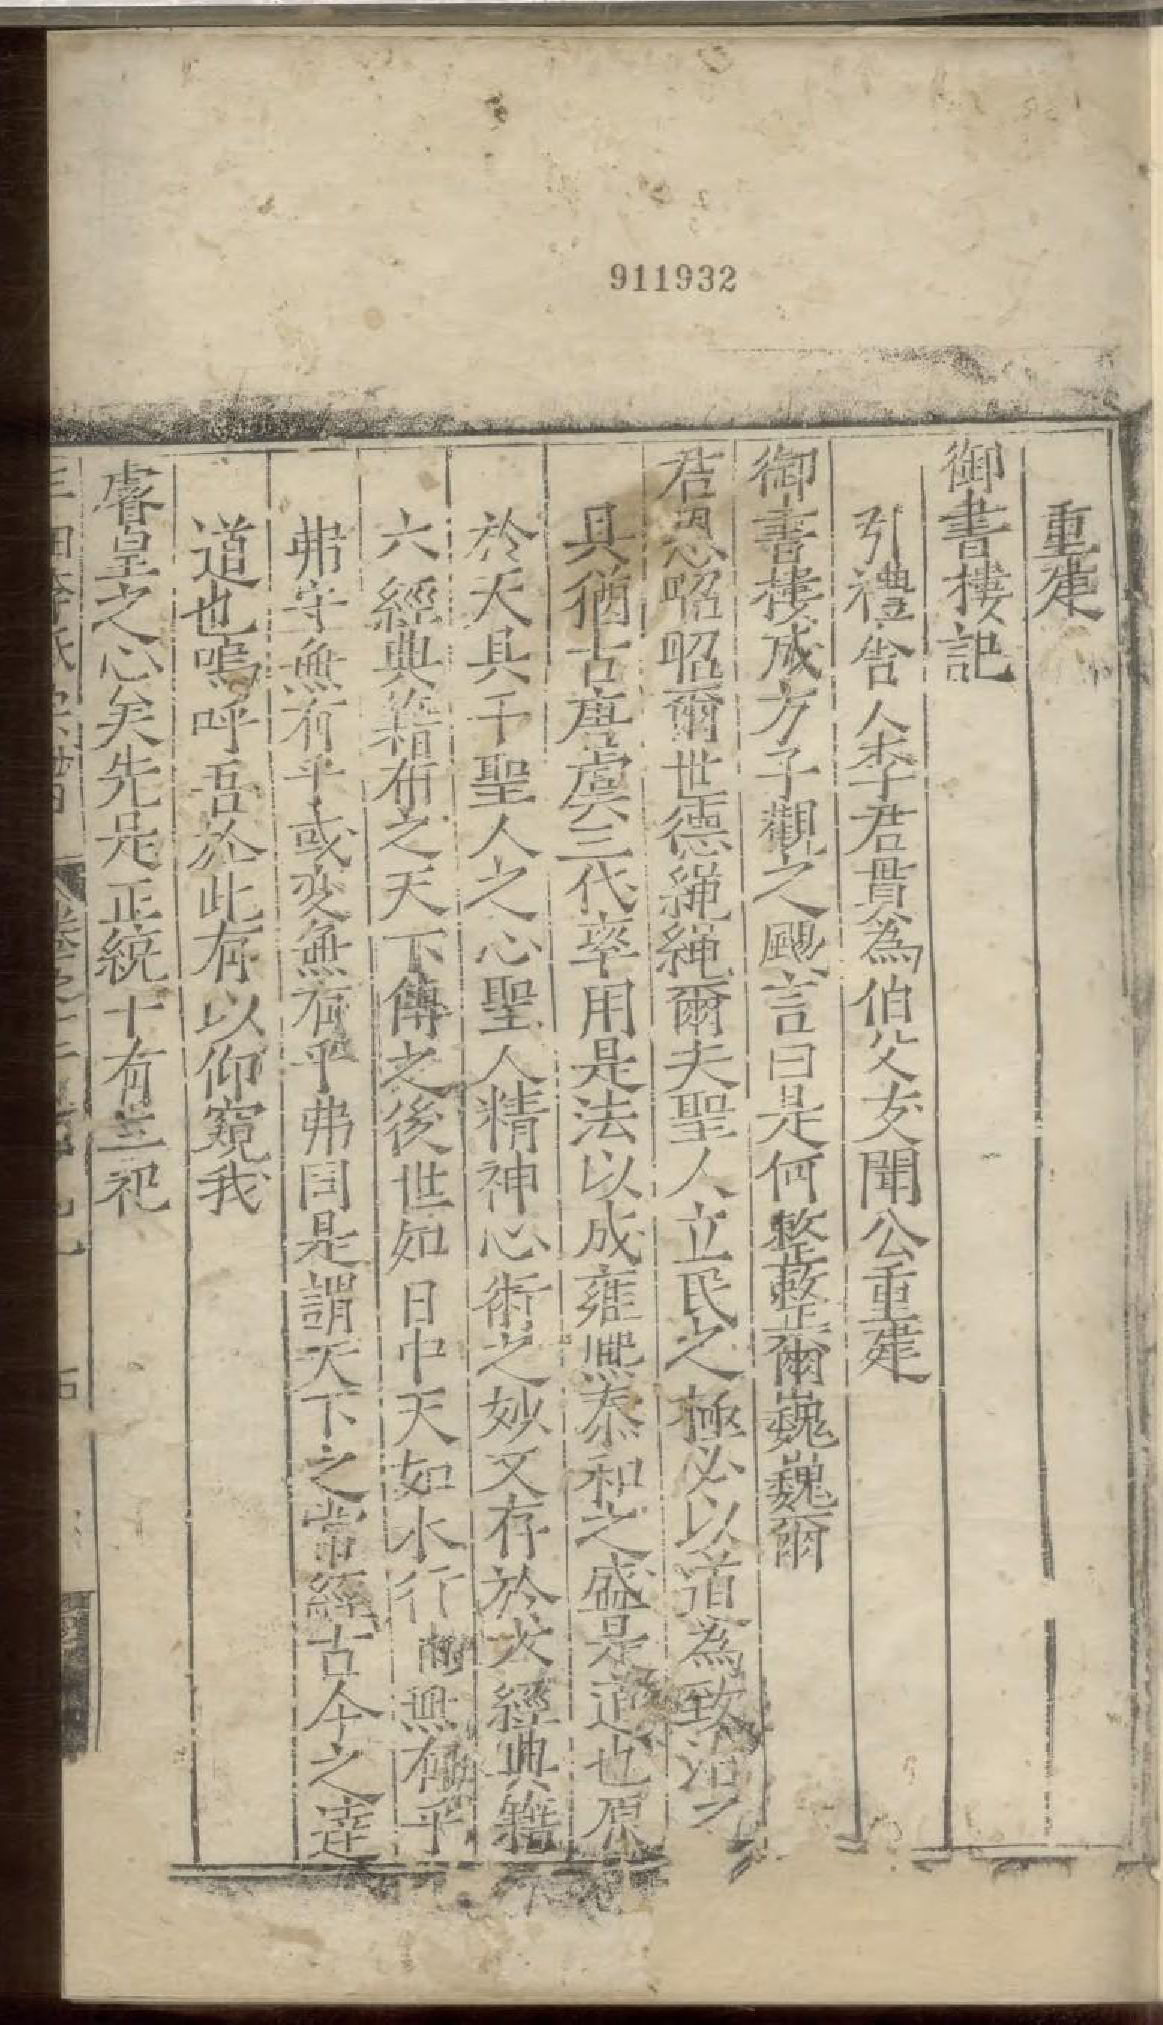 911932
重建
御書樓記
引禮舍人李君貫為伯父友聞公重建
御書樓成方子觀之颺言曰是何整整爾巍巍爾
君恩昭昭爾世德繩繩爾夫聖人立民之極必以道為致治之
具猶古唐虞三代率用是法以成雍熙泰和之盛是道也原
於天具于聖人之心聖人精神心術之妙又存於六經典籍
六經典籍布之天下傳之後世如日中天如水行 無有乎
弗守無有乎或变無有乎弗固是謂天下之常經古今之達
道也嗚呼吾於此有以仰窺我
睿皇之心矣先是正統十有三祀